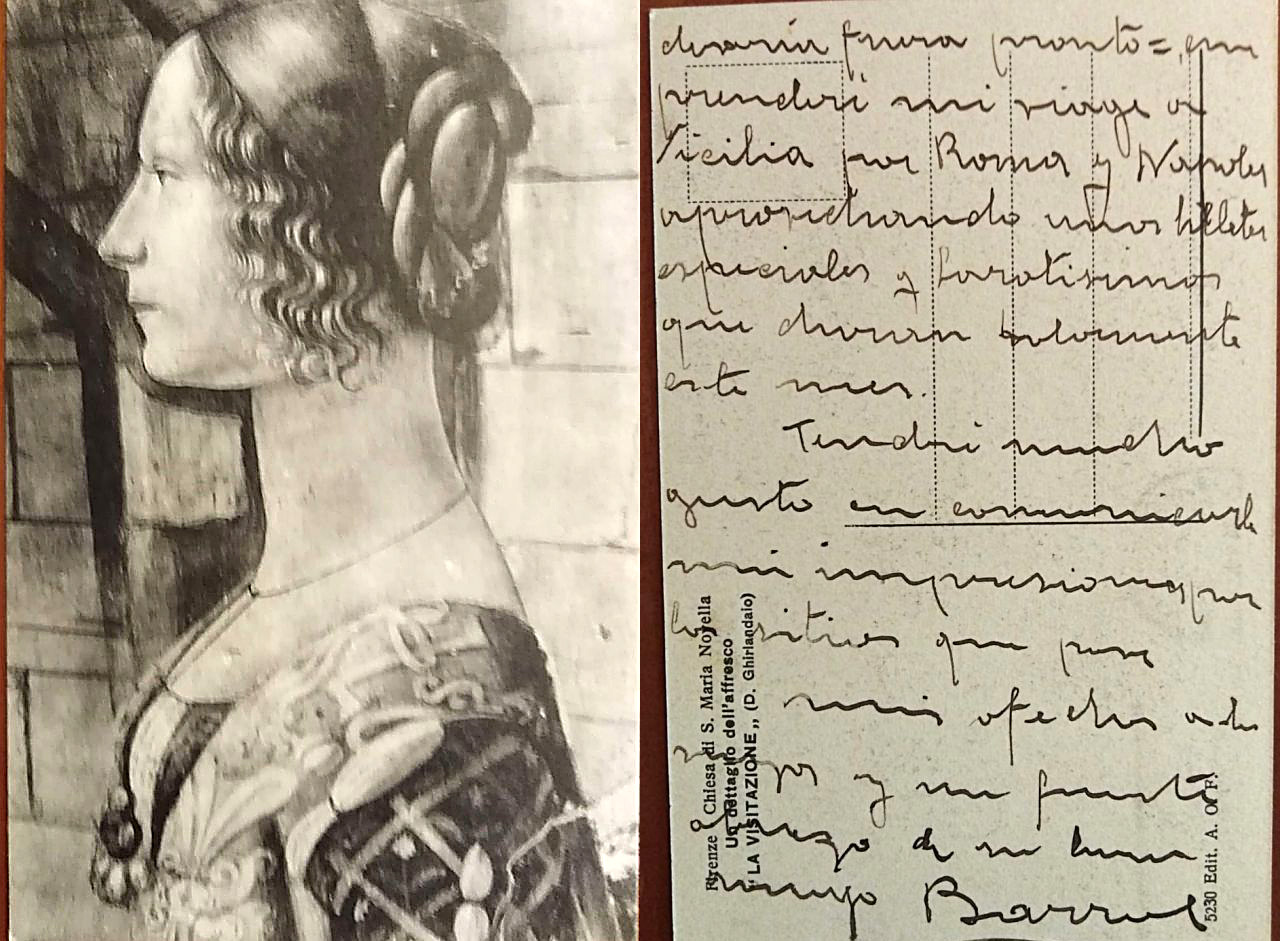 fuera pronto = em
prenderé mi viage a
Sicilia por Roma y Napoles
aprovechando unos billetes
especiales y baratisimos
que duran solamente
este mes.
Tendré mucho
gusto en comunicarle
mis impresiones por
los sitios que pase
mis afectos a los
y un fuerte
de su buen
amigo Barral
Firenze Chiesa di S. Maria Novella
Un dettaglio dell'affresco
"LA VISITAZIONE,, (D. Ghirlandaio)
5230 Edit. A. O. F.